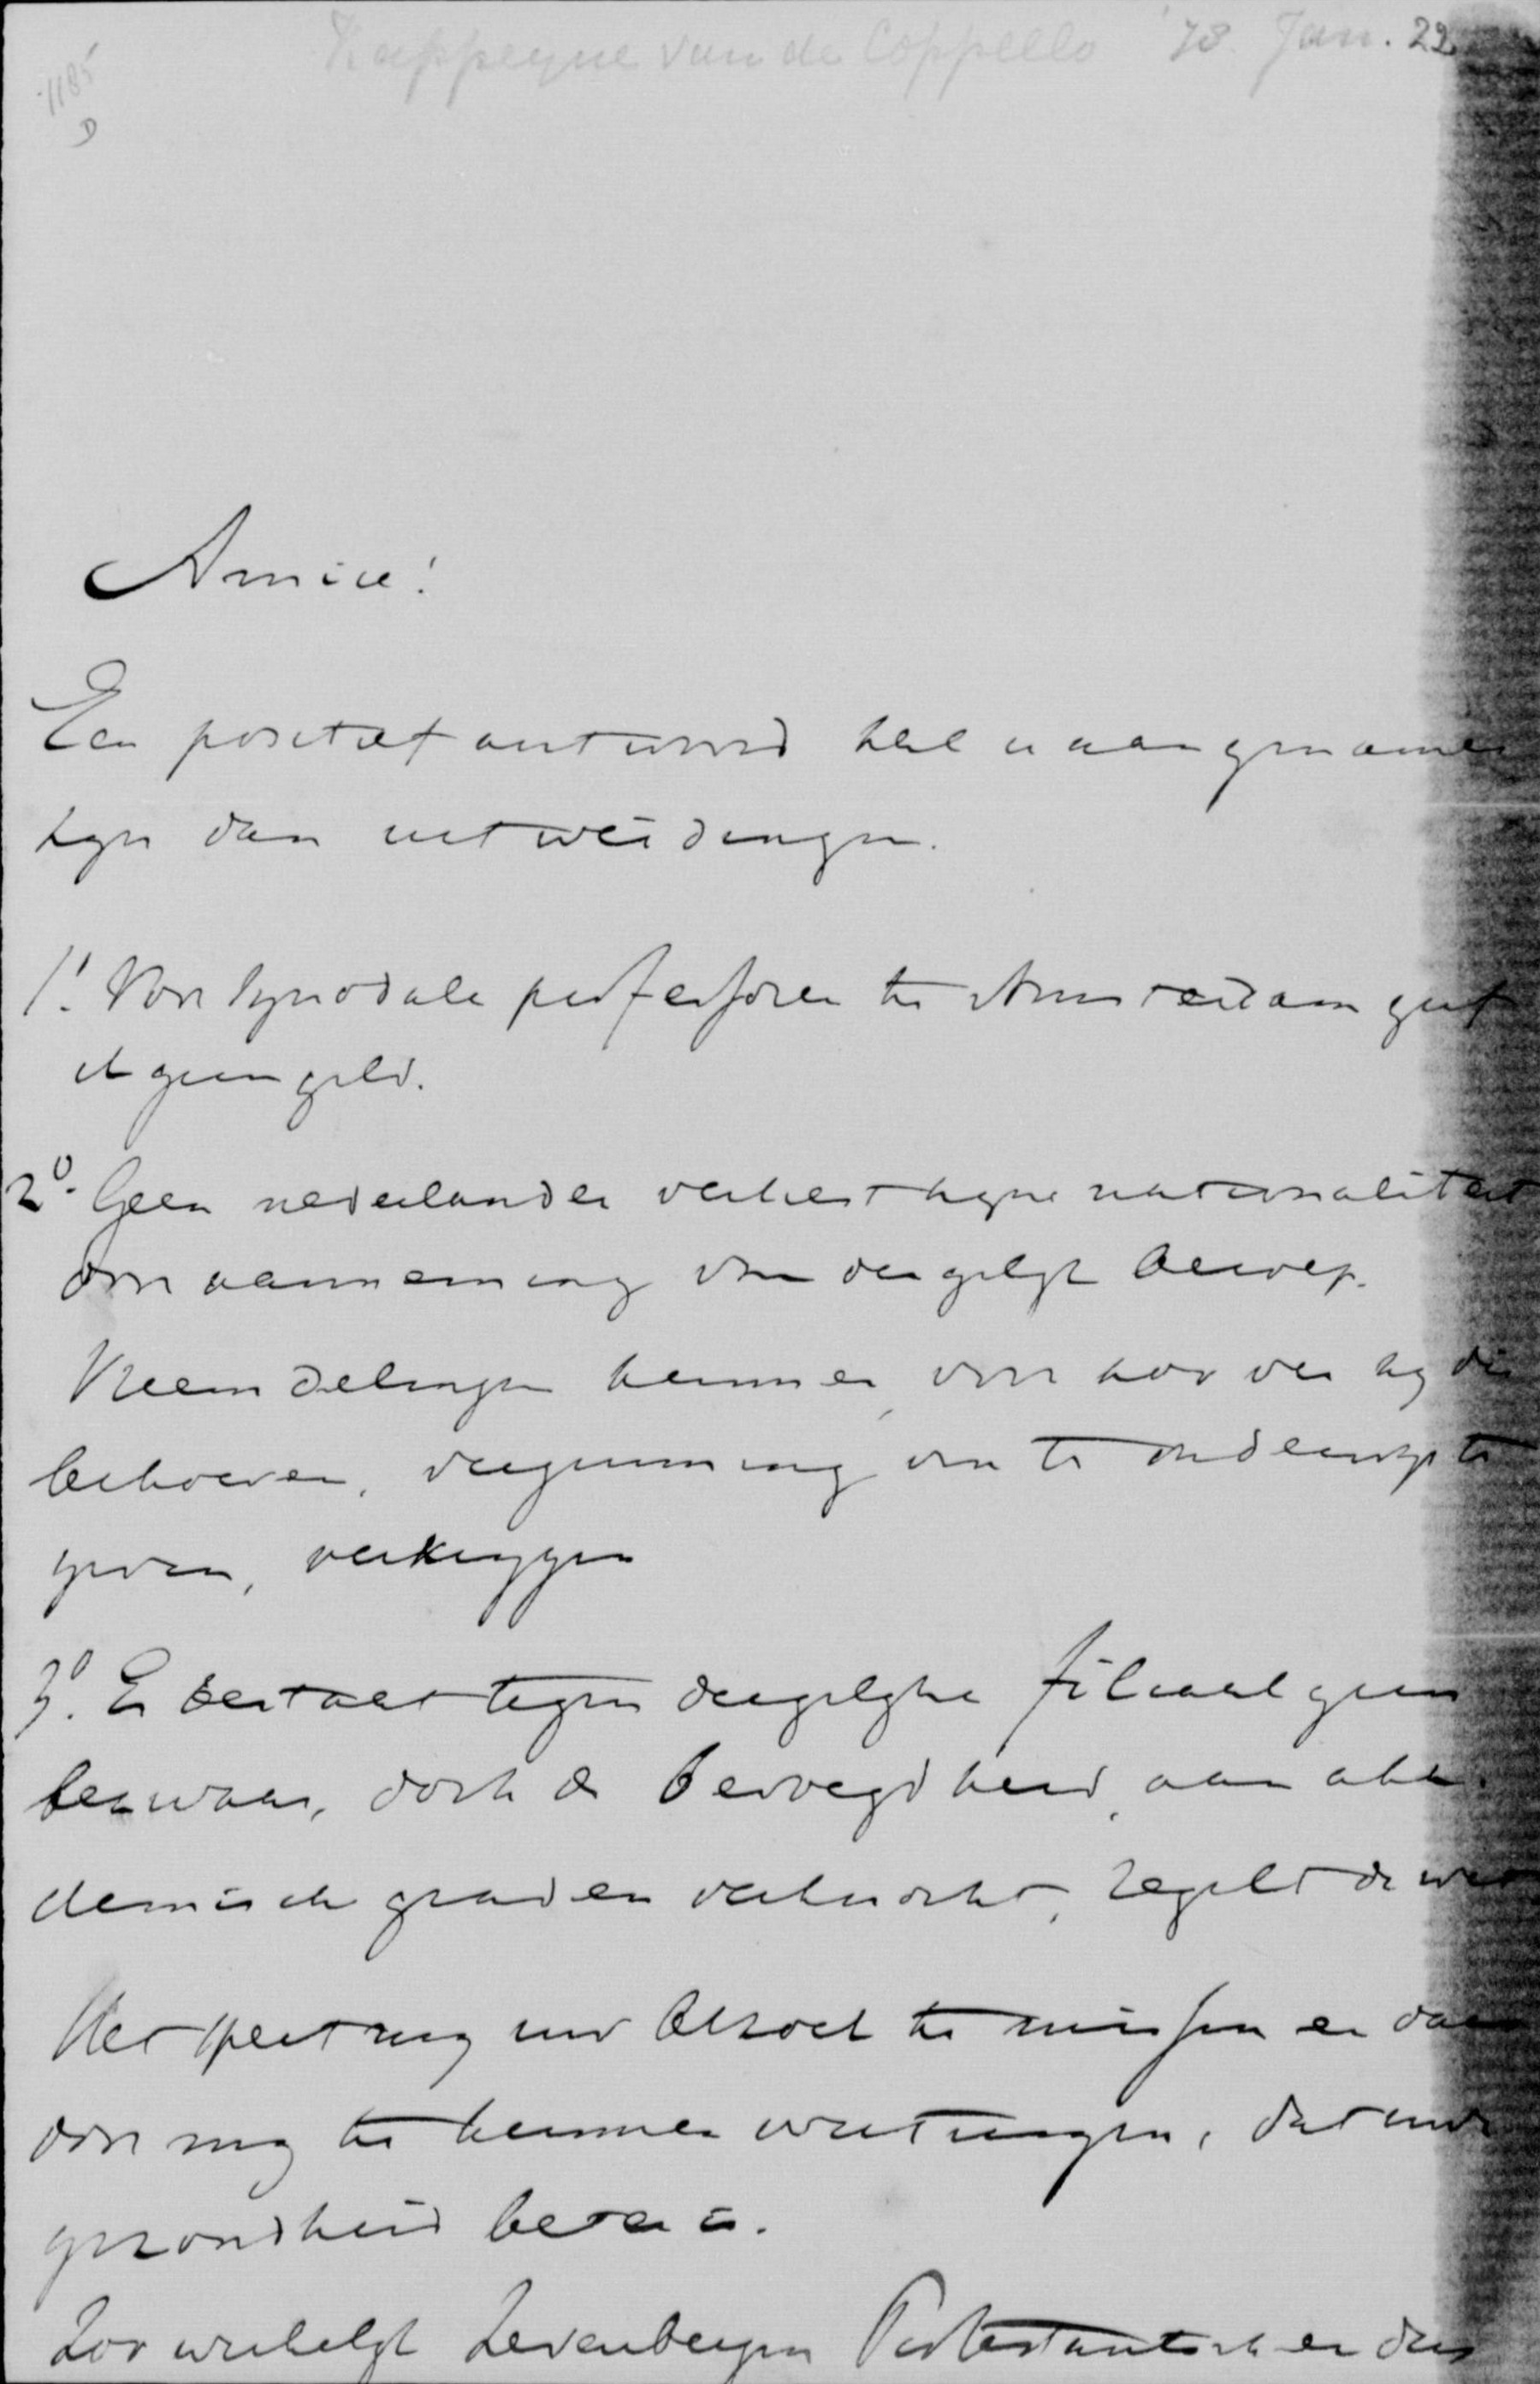 Kappeyne van de Coppello '78 Jan. 22
1185
D
Amice!
Een positief antwoord zal u aangenamer
zyn dan uitweidingen.
1º. Voor synodale professoren te Amsterdam geef
ik geen geld.
2º. Geen nederlander verliest zyne nationaliteit
door aanneming van dergelyk beroep.
Vreemdelingen kunnen, voor zoo ver zy die
behoeven, vergunning om te onderwys te
geven, verkrygen
3º. Er bestaat tegen dergelyke filiaal geen
bezwaar, doch de bevoegdheid, aan aka-
demische graden verknocht, regelt de wet
Het speet my uw bezoek te missen en daar
door my te kunnen overtuigen, dat uwe
gezondheid beter is.
Zoo werkelyk Zevenbergen Protestantsch en dus